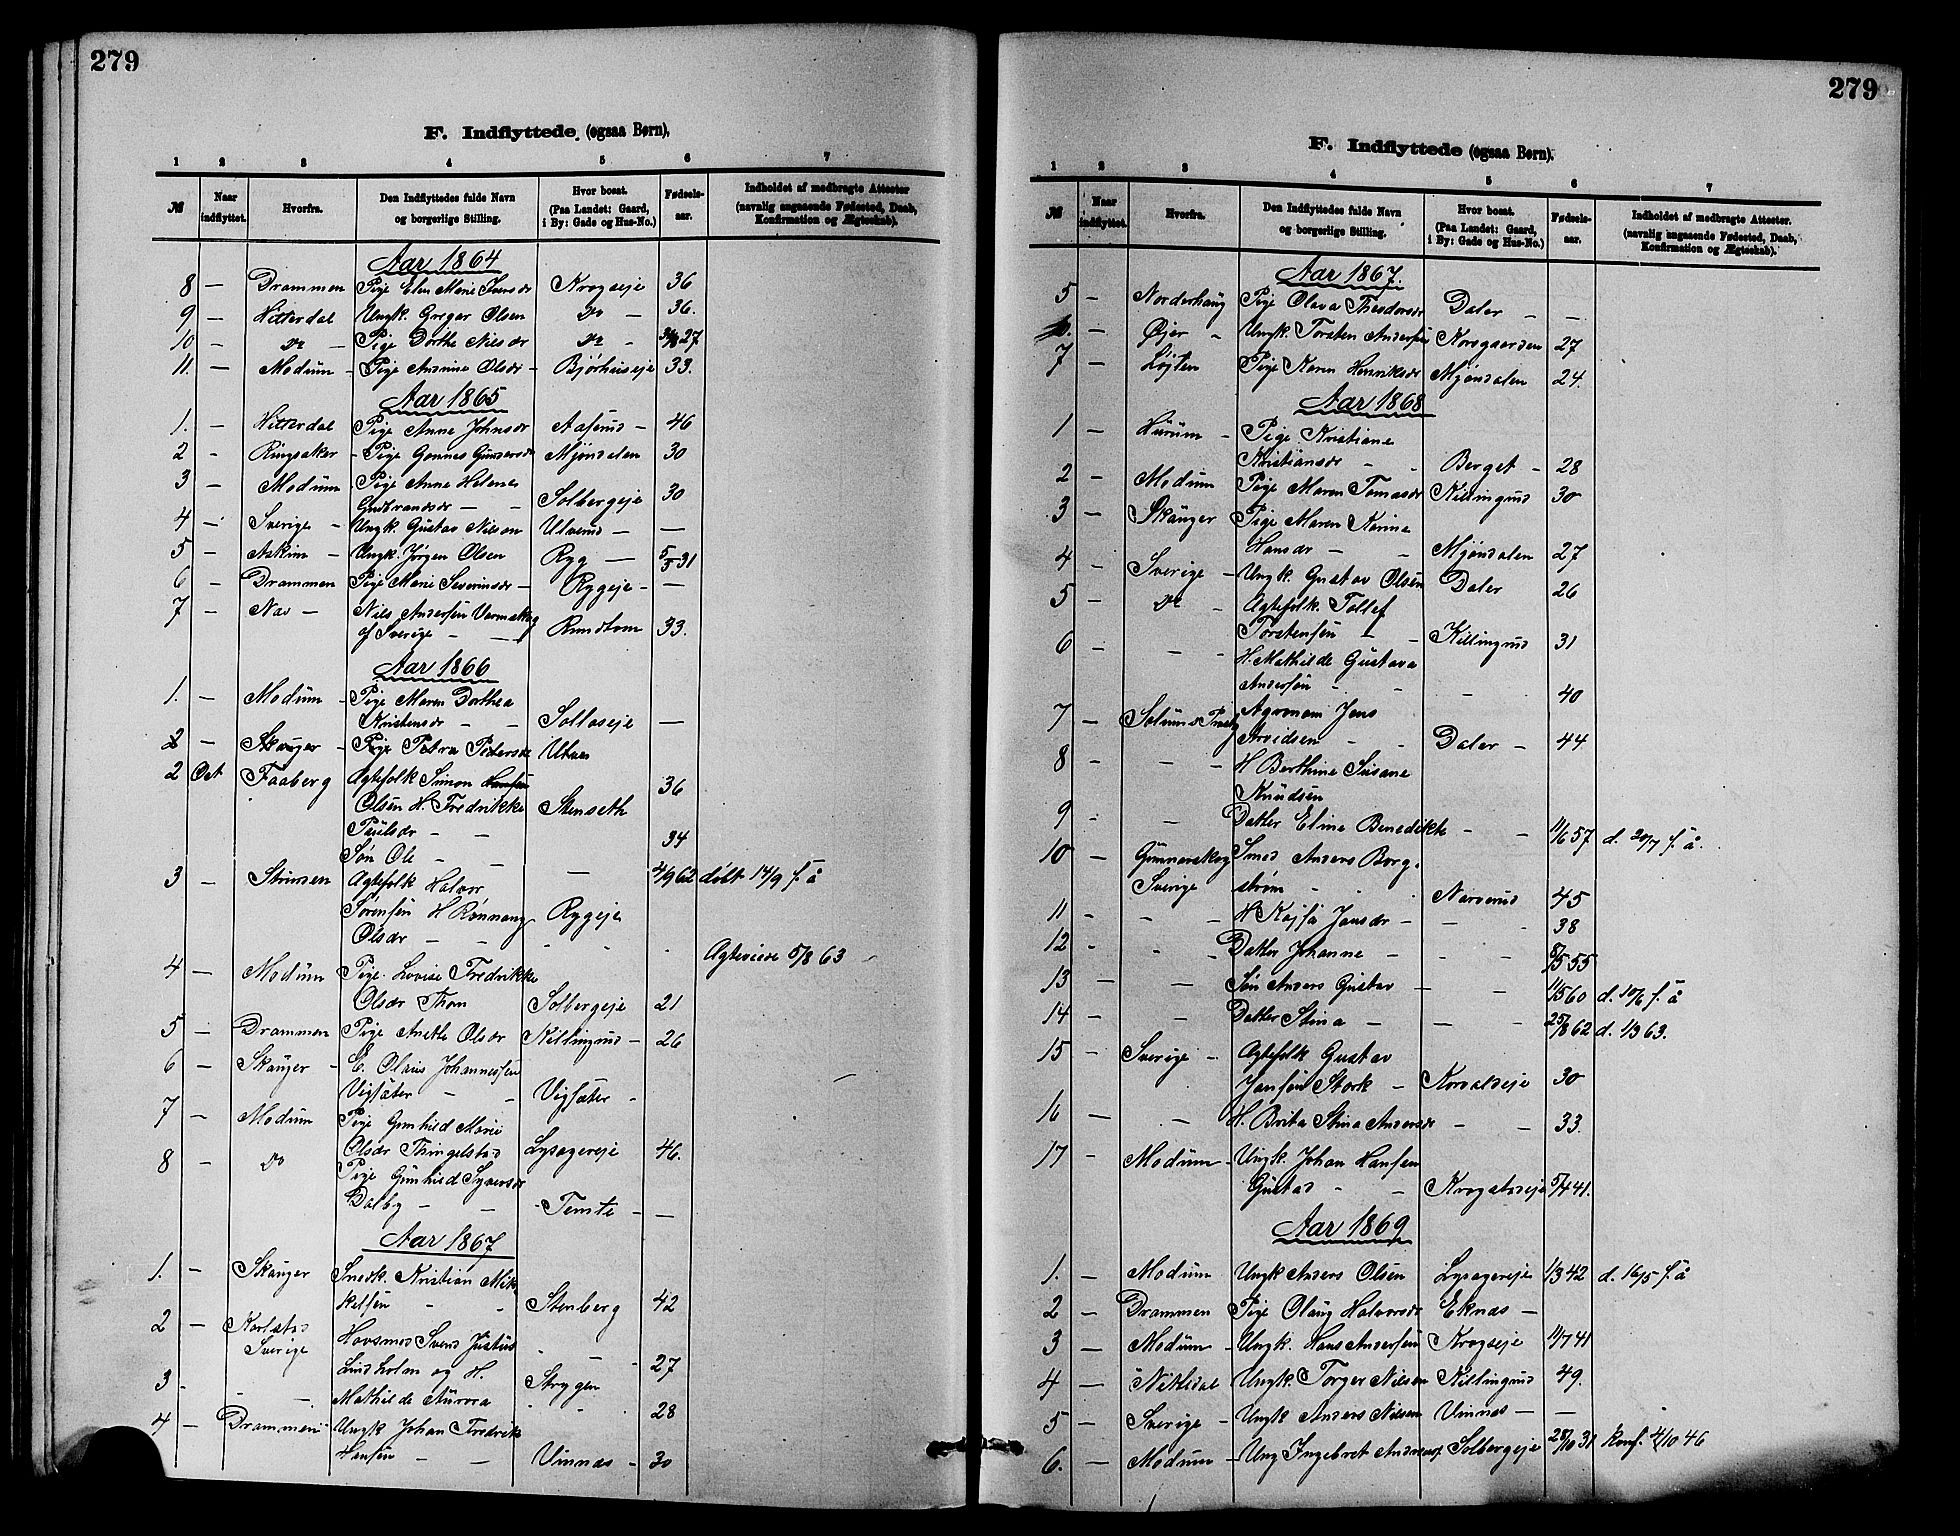 279
F. Indflyttede (ogsaa Børn).
1 2 3 4 5 6 7
№ Naar indflyttet. Hvorfra. Den Indflyttedes fulde Navn og borgerlige Stilling. Hvor bosat. (Paa Landet: Gaard, i By: Gade og Hus-No.) Fødsels-aar. Indholdet af medbragte Attester (navnlig angaaende Fødested, Daab, Konfirmation og Ægteskab).
Aar 1864
8 — Drammen Pige Elen Marie Iversdr Krogseje 36
9 — Hitterdal Ungk. Gregar Olsen Do — 36.
10 — Do — Pige Dorthe Nilsdr Do - 27
11. — Modum - Pige Andrine Olsdr - Bjørhuseje 33.
Aar 1865
1. — Hitterdal Pige Anne Johnsdr Aaserud - 46
2 - Ringsaker - Pige Gonnes Gundersdr Mjøndalen 30
3 — Modum Pige Anne Helene
Gudbrandsdr — - Solbergeje 30
4 — Sverige - Ungk. Gustav Nilson Ulverud — —
5 — Askim — Ungk. Jørgen Olsen Ryg — 5/5 31
6 — Drammen Pige Marie Severinsdr - Rygeje - —
7 — Nav — Nils Andersen Varmskog
af Sverige - — Rundtom 33.
Aar 1866
1. — Modum - Pige Maren Dorthea
Kristensdr - - Solloseje —
2 — Skauger - Pige Petra Pedersdr Utnes
2 Oct Faaberg Ægtefolk Simon Hansen 36
Olsen H. Fredrikke Stenseth
Paulsdr - - 34
Søn Ole — - — 2/9 62 døbt 14/9 f. å
3 — Strinden Ægtefolk Halvor
Sørensen H Rønnaug Rygeje
Olsdr - - - - - Ægteviede 5/8 63
4 — Modum Pige. Lovise Fredrikke
Olsdr Thon Solbergeje 21
5 — Drammen Pige Anethe Olsdr Killingrud - 26
6 — Skauger - E. Olaus Johannessen
Vigsæter - - Vigsæter -
7 — Modum Pige Gunhild Marie
Olsdr Thingelstad Lysagereje 46.
8 — Do Pige Gunhild Syversdr
Dalby - - - Temte - —
Aar 1867
1. — Skauger Snedk. Kristian Mik
kelsen - - Stenberg 42
2 — Karlstad
Sverige Hovsmed Svend Justus - — - 27
3 - - — Lindholm og H. Strygen
Mathilde Aurora - - 28
4 — Drammen Ungk Johan Fredrik
Hansen - - Vinnes - 30
279
F. Indflyttede (ogsaa Børn).
1 2 3 4 5 6 7
№ Naar indflyttet. Hvorfra. Den Indflyttedes fulde Navn og borgerlige Stilling. Hvor bosat. (Paa Landet: Gaard, i By: Gade og Hus-No.) Fødsels-aar. Indholdet af medbragte Attester. (navnlig angaaende Fødested, Daab, Konfirmation og Ægteskab).
Aar 1867.
5 — Norderhaug Pige Olava Theodorsdr Daler - —
6. — Øjer - Ungk. Torsten Andersen Korsgaarden 27
7 — Løjten Pige Karen Henriksdr Mjøndalen 24.
Aar 1868
1 — Hurum - Pige Kristiane
Kristiansdr - - Berget - 28
2 — Modum Pige Maren Tomasdr Killingrud 30
3 — Skauger Pige Maren Karine
Hansdr - - Mjøndalen 27
4 - Sverige - Ungk. Gustav Olsen Daler 26
5 — Do - Ægtefolk. Tollef
Torstensen - - Killingrud 31
6 — - - H. Mathilde Gustava
Andersen - - - 40
7 — Solums Præstg Agronom Jens
Arvidsen - - Daler - 44
8 - — - H Berthine Susane
Knudsen
9 - - — Datter Eline Benedikte - - 11/6 57 d. 20/7 f. å.
10 — Gunnarskog
Sverige Smed Anders Borg-
strøm - - Narverud 45
11 - - - H Kajsa Jansdr - - - 38
12 - - - Datter Johanne — - - 8/5 55
13 — - — Søn Anders Gustav — - 11/5 60 d. 10/6 f. å
14 — - Datter Stina — — - 25/8 62 d. 1/9 63.
15 — Sverige - Ægtefolk Gustav
Jansen Stork - Korvaldseje 30
16 — - H. Brita Stina Andersdr - - 33.
17 - Modum - Ungk. Johan Hansen
Gustad - - Krogstadeje 5/4 41.
Aar 1869
1. — Modum Ungk Anders Olsen Lysagereje 1/3 42 d. 16/5 f. å
2 — Drammen Pige Olaug Halvorsdr Eknæs -
3 — Modum - Ungk. Hans Andersen Krogseje 11/7 41
4 — Nittedal Ungk. Torger Nilsen Killingrud 49.
5 — Sverige - Ungk Anders Nilsen Vinnes — —
6. — Modum - Ung Ingebret Anders. Solbergeje 28/10 31 konf. 4/10 46